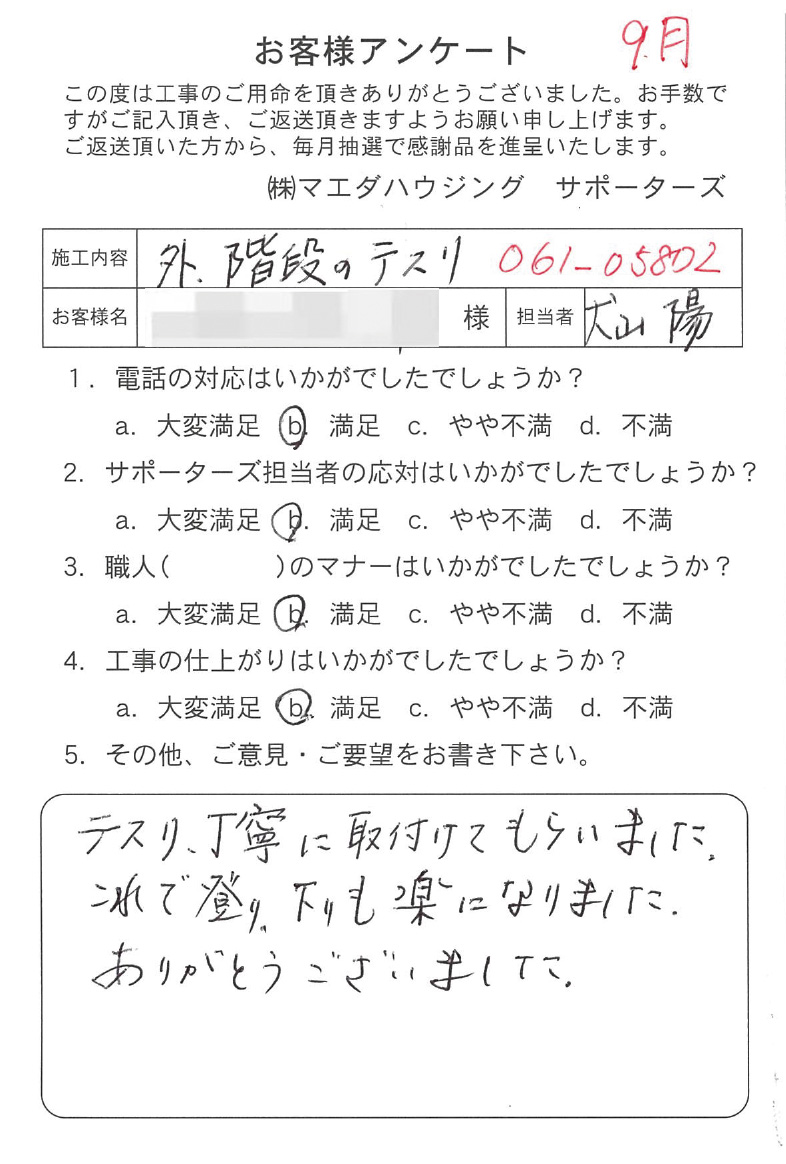 9月
お客様アンケート
この度は工事のご用命を頂きありがとうございました。お手数で
すがご記入頂き、ご返送頂きますようお願い申し上げます。
ご返送頂いた方から、毎月抽選で感謝品を進呈いたします。
㈱マエダハウジング　サポーターズ
施工内容 外、階段のテスリ 061-05802
お客様名 様 担当者 犬山 陽
1. 電話の対応はいかがでしたでしょうか？
a. 大変満足 b. 満足 c. やや不満 d. 不満
2. サポーターズ担当者の応対はいかがでしたでしょうか？
a. 大変満足 b. 満足 c. やや不満 d. 不満
3. 職人(　　　　)のマナーはいかがでしたでしょうか？
a. 大変満足 b. 満足 c. やや不満 d. 不満
4. 工事の仕上がりはいかがでしたでしょうか？
a. 大変満足 b. 満足 c. やや不満 d. 不満
5. その他、ご意見・ご要望をお書き下さい。
テスリ、丁寧に取付けてもらいました。
これで登り、下りも楽になりました。
ありがとうございました。